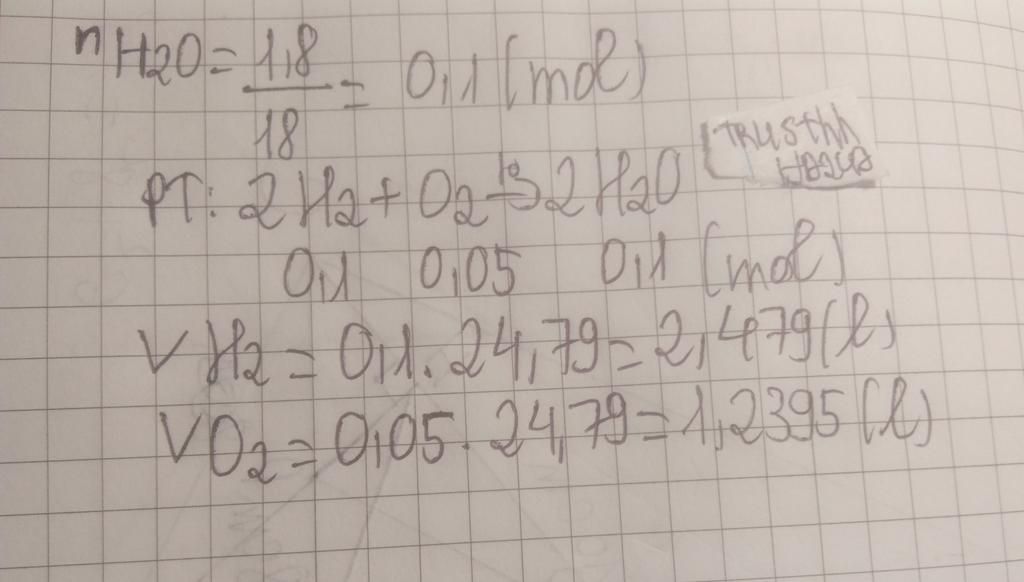 nH2O = 1,8/18 = 0,1 (mol)
PT: 2H2 + O2 -to-> 2H2O
0,1 0,05 0,1 (mol)
VH2 = 0,1. 24,79 = 2,479 (l)
VO2 = 0,05. 24,79 = 1,2395 (l)